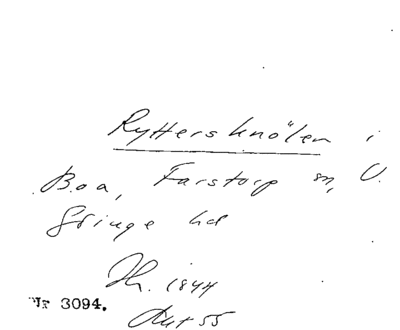 Ryttersknölen i
Boa, Farstorp sn, V.
Göinge hd
1844
Nr 3094.
55